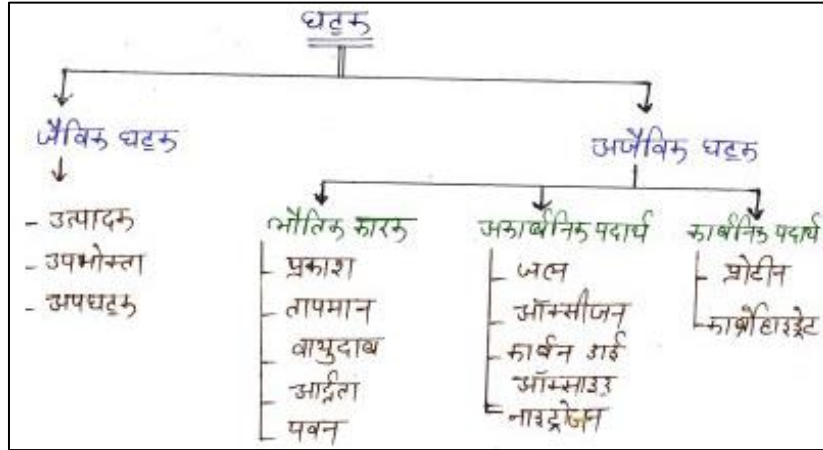 घटक
जैविक घटक
अजैविक घटक
- उत्पादक
- उपभोक्ता
- अपघटक
भौतिक कारक
- प्रकाश
- तापमान
- वायुदाब
- आर्द्रता
- पवन
अकार्बनिक पदार्थ
- जल
- ऑक्सीजन
- कार्बन डाई
ऑक्साइड
- नाइट्रोजन
कार्बनिक पदार्थ
- प्रोटीन
- कार्बोहाइड्रेट